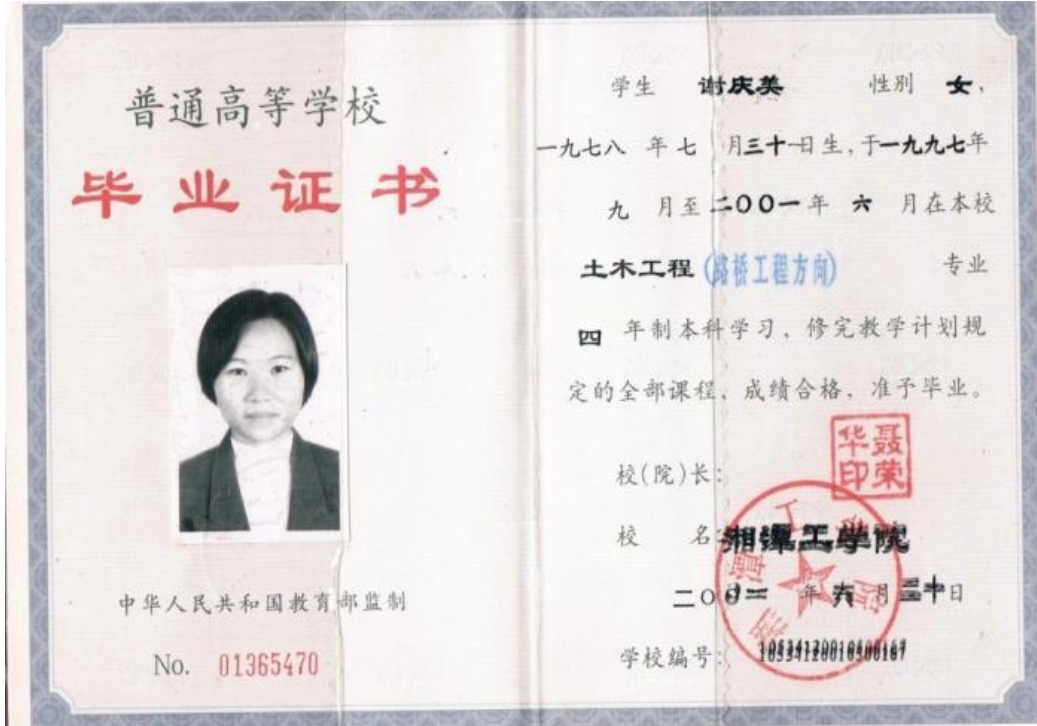 普通高等学校
毕业证书
中华人民共和国教育部监制
No. 01365470
学生 谢庆美 性别 女,
一九七八 年 七 月三十日生,于一九九七年
九 月至二〇〇一年 六 月在本校
土木工程(路桥工程方向) 专业
四 年制本科学习、修完教学计划规
定的全部课程、成绩合格、准予毕业。
聂荣华印
校(院)长:
校 名:湘潭工学院
湘潭工学院
二〇〇一 年 六 月 三十日
学校编号: